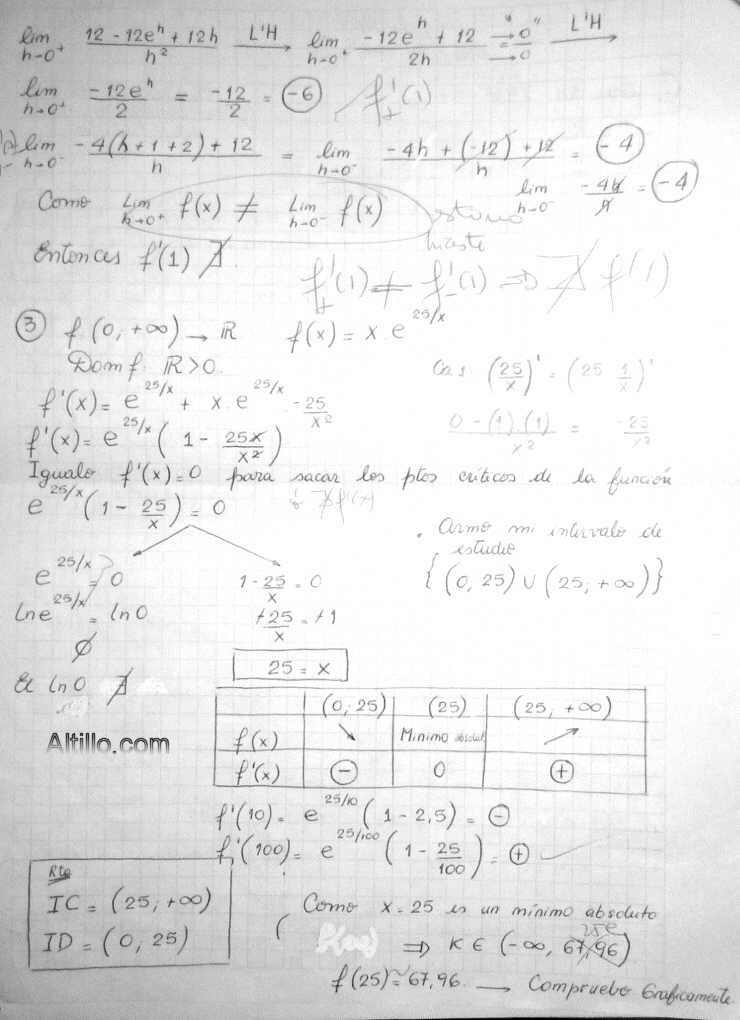 lim h→0⁺ (12 - 12e^h + 12h)/h² L'H→ lim h→0⁺ (-12e^h + 12)/2h = "→0/→0" L'H→
lim h→0⁺ -12e^h/2 = -12/2 = -6 f'₊(1)
lim h→0⁻ (-4(h+1+2) + 12)/h = lim h→0⁻ (-4h + (-12) + 12)/h = -4
lim h→0⁻ -4h/h = -4
Como Lim h→0⁺ f(x) ≠ Lim h→0⁻ f(x)
Entonces f'(1) ∄.
f'₊(1) ≠ f'₋(1) ⇒ ∄ f'(1)
③ f (0, +∞) → ℝ f(x) = x.e^(25/x)
Dom f: ℝ>0.
f'(x) = e^(25/x) + x.e^(25/x) -25/x²
(25/x)' = (25 1/x)'
(0 - (1).(1))/x² = -25/x²
f'(x) = e^(25/x) (1 - 25x/x²)
Igualo f'(x)=0 para sacar los ptos criticos de la función
ó ∄f'(x)
e^(25/x) (1 - 25/x) = 0
. Armo mi intervalo de
estudio
{(0, 25) ∪ (25; +∞)}
e^(25/x) = 0
1 - 25/x = 0
ln e^(25/x) = ln 0
+25/x = +1
∅
25 = x
El ln 0 ∄
(0; 25) (25) (25; +∞)
f(x) ↘ Minimo absolut ↗
f'(x) ⊖ 0 ⊕
Altillo.com
f'(10) = e^(25/10) (1 - 2,5) = ⊖
f'(100) = e^(25/100) (1 - 25/100) = ⊕
Rta
IC = (25; +∞)
ID = (0, 25)
Como x = 25 es un mínimo absoluto
25e
⇒ K ∈ (-∞, 67,96)
f(25) ≈ 67,96. → Compruebo Graficamente.